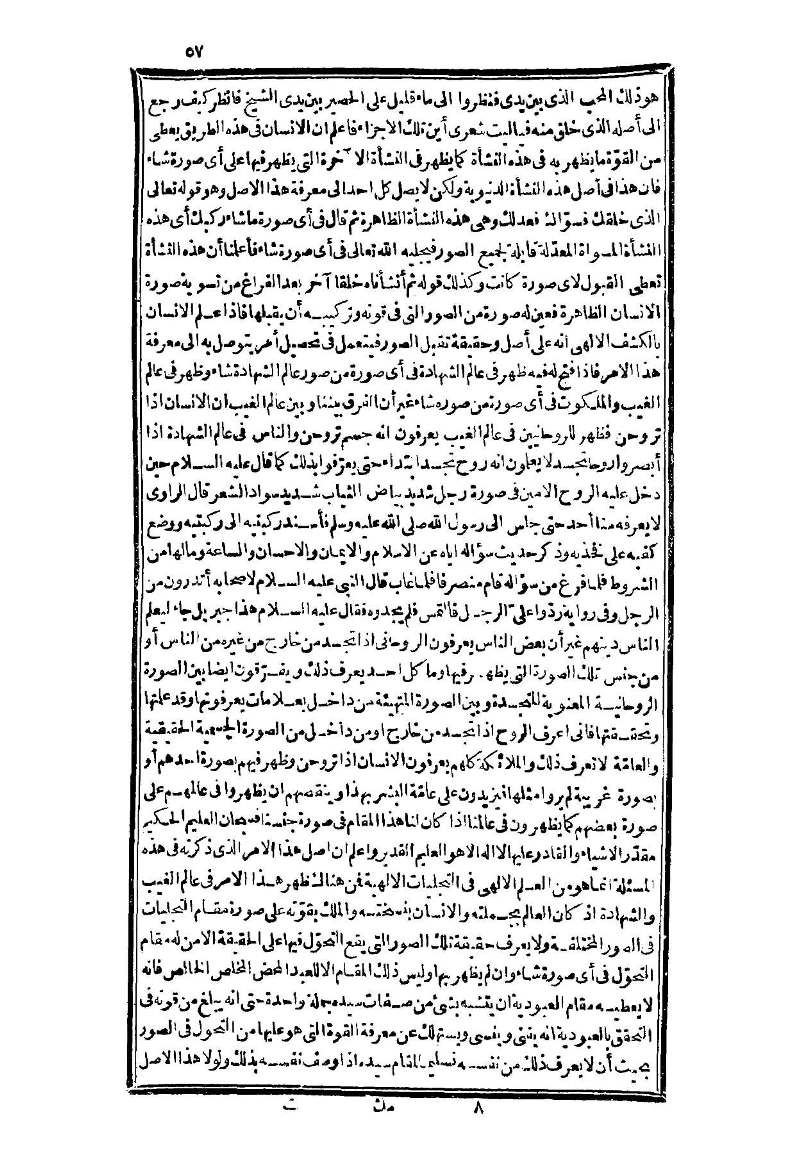 ٥٧
هو ذلك المحب الذي بين يدي فنظروا الى ماء قليل على الحصير بين يدى الشيخ فانظر كيف رجع
الى أصله الذى خلق منه فيا ليت شعرى أين تلك الاجزاء فاعلم ان الانسان فى هذه الطريق يعطى
من القوّة ما يظهر به فى هذه النشأة كما يظهر فى النشأة الآخرة التى يظهر فيها على أى صورة شاء
فان هذا فى أصل هذه النشأة الدنيوية ولكن لا يصل كل احد الى معرفة هذا الاصل وهو قوله تعالى
الذى خلقك فسوّاك فعدلك وهى هذه النشأة الظاهرة ثم قال فى أى صورة ما شاء ركبك أى هذه
النشأة المسواة المعدّلة قابلة لجميع الصور فيجليه الله تعالى فى أى صورة شاء فأعلمنا أن هذه النشأة
تعطى القبول لاى صورة كانت وكذلك قوله ثم أنشأناه خلقا آخر بعد الفراغ من تسوية صورة
الانسان الظاهرة فعين له صورة من الصور التى فى قوته وتركيبه أن يقبلها فاذا علم الانسان
بالكشف الالهى انه على أصل وحقيقة تقبل الصور فيتعمل فى تحصيل أمر يتوصل به الى معرفة
هذا الامر فاذا فتح له فيه ظهر فى عالم الشهادة فى أى صورة من صور عالم الشهادة شاء وظهر فى عالم
الغيب والملكوت فى أى صورة من صوره شاء غير أن الفرق بيننا وبين عالم الغيب ان الانسان اذا
تروحن فظهر للروحانيين فى عالم الغيب يعرفون انه جسم تروحن والناس فى عالم الشهادة اذا
أبصروا روحا تجسد لا يعلمون انه روح تجسد ابتداء حتى يعرّفوا بذلك كما قال عليه السلام حين
دخل عليه الروح الامين فى صورة رجل شديد بياض الثياب شديد سواد الشعر قال الراوى
لا يعرفه منا أحد حتى جلس الى رسول الله صلى الله عليه وسلم فأسند ركبتيه الى ركبتيه ووضع
كفيه على فخذيه وذكر حديث سؤاله اياه عن الاسلام والايمان والاحسان والساعة ومالها من
الشروط فلما فرغ من سؤاله قام منصرفا فلما غاب قال النبى عليه السلام لاصحابه أتدرون من
الرجل وفى رواية ردّوا علىّ الرجل فالتمس فلم يجدوه فقال عليه السلام هذا جبريل جاء ليعلم
الناس دينهم غير أن بعض الناس يعرفون الروحانى اذا تجسد من خارج من غيره من الناس أو
من جنس تلك الصورة التى يظهر فيها وما كل احد يعرف ذلك ويفرّقون ايضا بين الصورة
الروحانية المعنوية المتجسدة وبين الصورة المتهيئة من داخل بعلامات يعرفونها وقد علمتها
وتحققتها فانى اعرف الروح اذا تجسد من خارج او من داخل من الصورة الجسمية الحقيقية
والعامّة لا تعرف ذلك والملائكة كلهم يعرفون الانسان اذا تروحن وظهر فيهم بصورة احدهم أو
بصورة غريبة لم يروا مثلها فيزيدون على عامّة البشر بهذا وينقصهم ان يظهروا فى عالمهم على
صورة بعضهم كما يظهرون فى عالمنا اذا كان لنا هذا المقام فى صورة جنسنا فسبحان العليم الحكيم
مقدّر الاشياء والقادر عليها لا اله الا هو العليم القدير واعلم ان اصل هذا الامر الذى ذكرته فى هذه
المسئلة انما هو من العلم الالهى فى التجليات الالهية فمن هنالك ظهر هذا الامر فى عالم الغيب
والشهادة اذ كان العالم بجملته والانسان بنسخته والملك بقوّته على صورة مقام التجليات
فى الصور المختلفة ولا يعرف حقيقة تلك الصور التى يقع التحوّل فيها على الحقيقة الا من له مقام
التحوّل فى أى صورة شاء وان لم يظهر بها وليس ذلك المقام الا للعبد المحض الخالص فانه
لا يعطيه مقام العبودية ان يتشبه بشئ من صفات سيده جملة واحدة حتى انه يبلغ من قوته فى
التحقق بالعبودية انه يفنى وينسى ويستهلك عن معرفة القوة التى هو عليها من التحول فى الصور
بحيث أن لا يعرف ذلك من نفسه تسليما لمقام سيده اذا وصف نفسه بذلك ولولا هذا الاصل
٨ مك ت